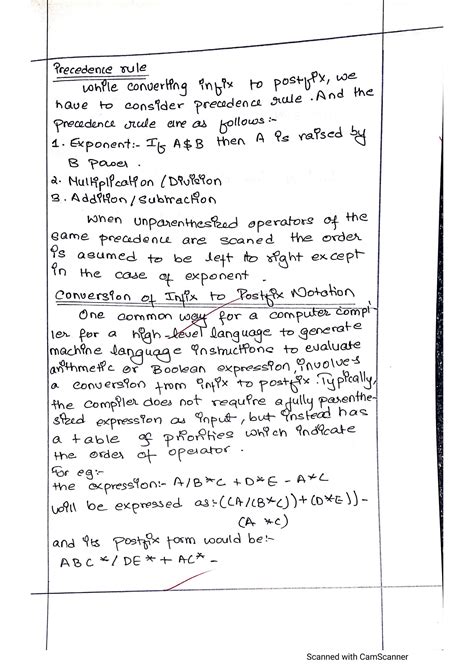 Precedence rule
While converting infix to postfix, we
have to consider precedence rule. And the
precedence rule are as follows:-
1. Exponent:- If A$B then A is raised by
B power.
2. Multiplication / Division
3. Addition / Subtraction
When unparenthesized operators of the
same precedence are scaned the order
is asumed to be left to right except
in the case of exponent.
Conversion of Infix to Postfix Notation
One common way for a computer compi-
ler for a high-level language to generate
machine language instructions to evaluate
arithmetic or Boolean expression, involves
a conversion from infix to postfix. Typically,
the compiler does not require a fully parenthe-
sized expression as input, but instead has
a table of priorities which indicate
the order of operator.
for eg:-
the expression:- A/B*C + D*E - A*C
will be expressed as:-((A/(B*C))+(D*E))-
(A *C)
and its postfix form would be:-
ABC*/DE*+ AC* -
Scanned with CamScanner